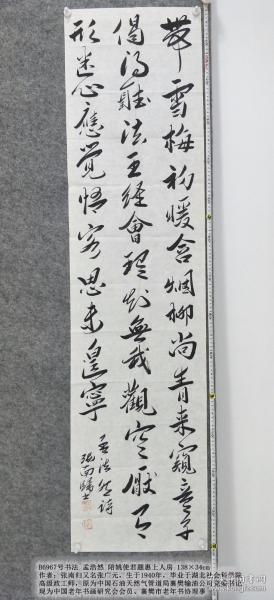 帶雪梅初暖含烟柳尚青来窺童子
偈得聽法王經會理知無我觀空厭有
形迷心應覺悟客思未皇寧
孟浩然詩
張南歸書
B6967号书法 孟浩然 陪姚使君题惠上人房 138×34cm
作者：张南归又名张广元，生于1940年，毕业于湖北社会科学院
高级政工师，原为中国石油天然气管道局襄樊输油公司党委书记
现为中国老年书画研究会会员、襄樊市老年书协理事